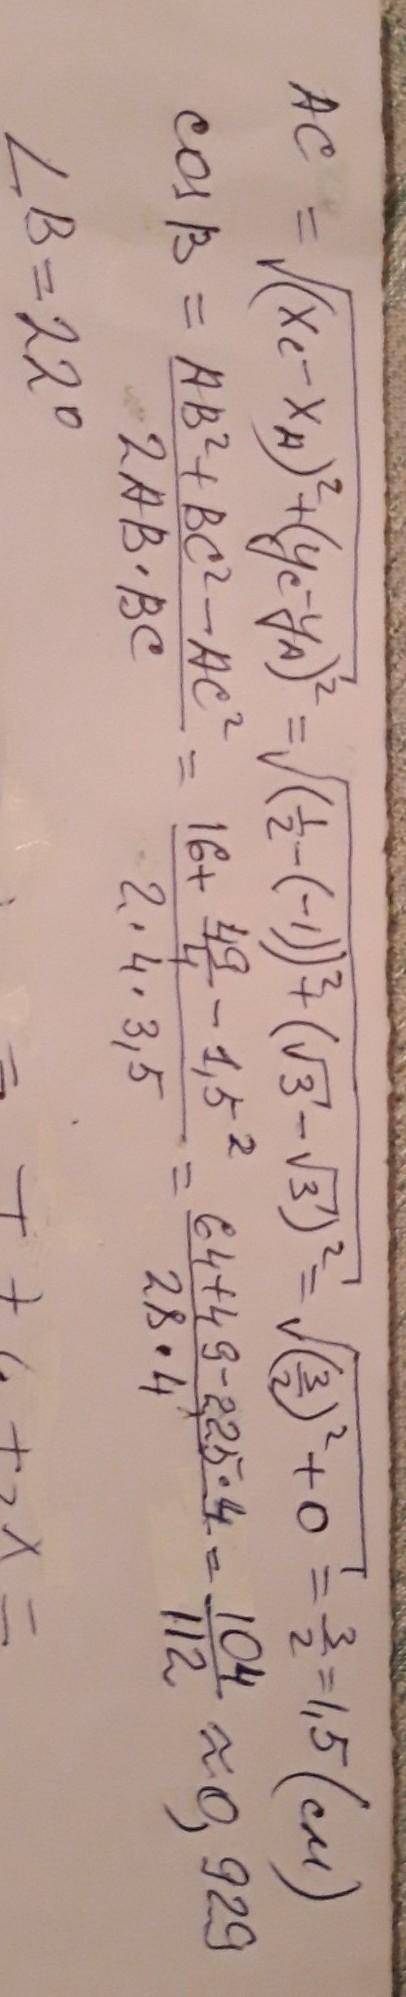 AC = √((x_C - x_A)² + (y_C - y_A)²) = √((1/2 - (-1))² + (√3 - √3)²) = √((3/2)² + 0) = 3/2 = 1,5 (см)
cos B = (AB² + BC² - AC²)/(2AB · BC) = (16 + 49/4 - 1,5²)/(2 · 4 · 3,5) = (64 + 49 - 2,25 · 4)/(28 · 4) = 104/112 ≈ 0,929
∠B = 22°